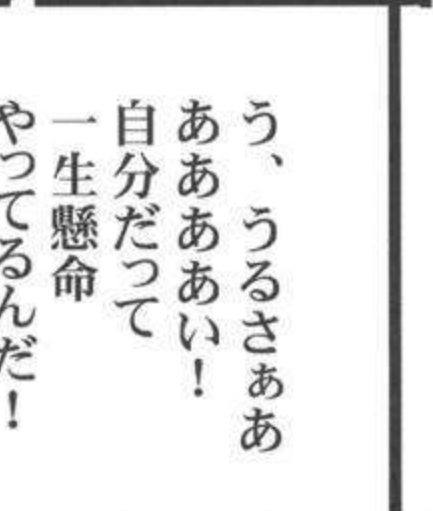 う、うるさぁあ
ああああい！
自分だって
一生懸命
やってるんだ！